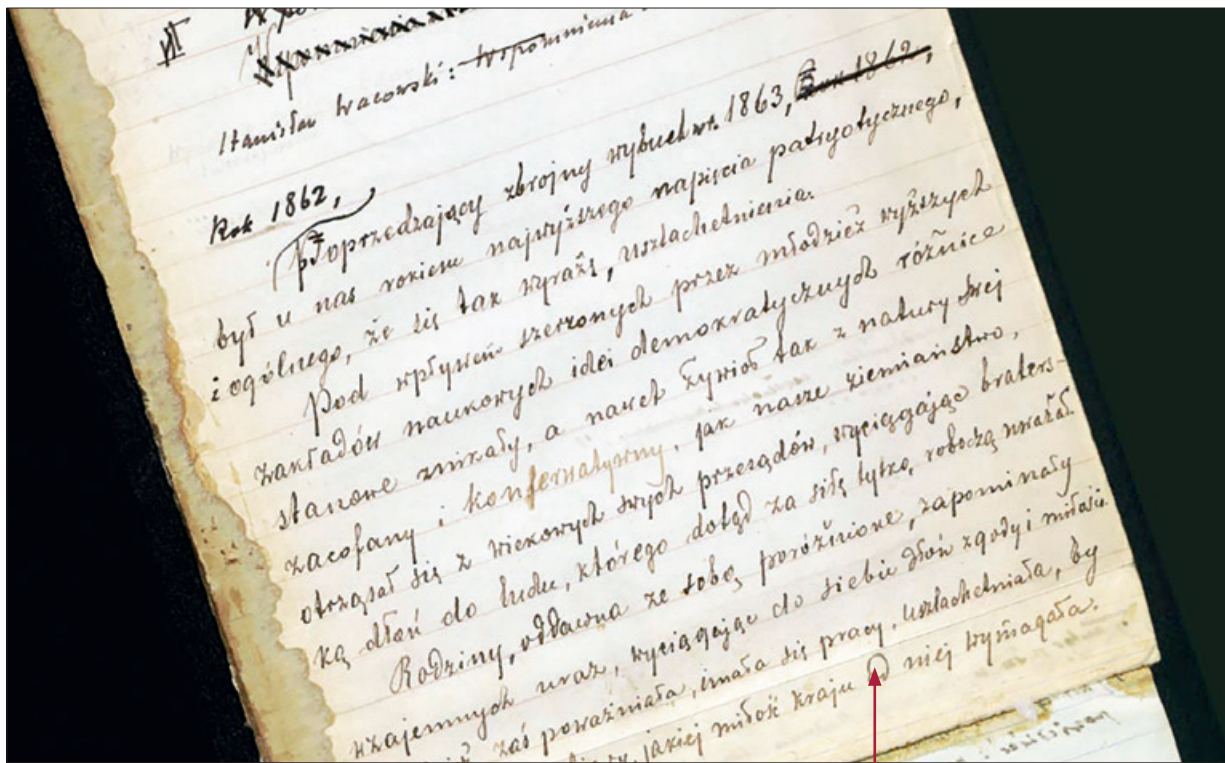 III
Stanisław Wspomnienia
Rok 1862,
Poprzedzający zbrojny wybuch w r. 1863, Rok 1862,
był u nas rokiem najwyższego napięcia patryotycznego,
i ogólnego, że się tak wyrażę, uszlachetnienia.
Pod wpływem szerzonych przez młodzież wyższych
zakładów naukowych idei demokratycznych różnice
stanowe znikały, a nawet żywioł tak z natury swej
zacofany i konserwatywny, jak nasze ziemiaństwo,
otrząsał się z wiekowych swych przesądów, wyciągając braters-
ką dłoń do ludu, którego dotąd za siłę tylko roboczą uważał.
Rodziny, oddawna ze sobą poróżnione, zapominały
wzajemnych uraz, wyciągając do siebie dłoń zgody i miłości.
zaś poważniała, imała się pracy, uszlachetniała, by
jakiej miłość kraju od niej wymagała.